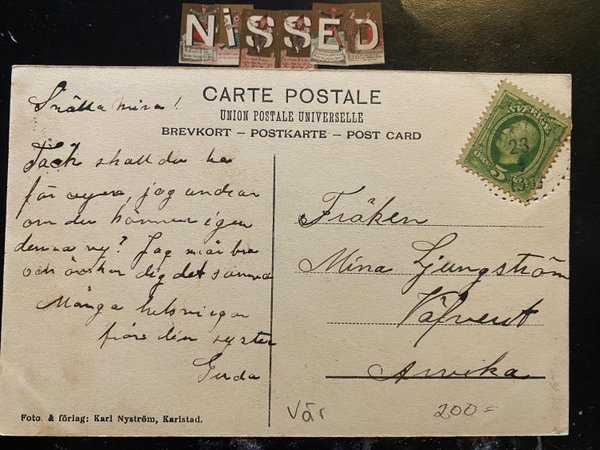 NISSED
CARTE POSTALE
UNION POSTALE UNIVERSELLE
BREVKORT – POSTKARTE – POST CARD
Snälla mina!
Tack skall du ha
för vyen, jag undrar
om du känner igen
denna vy? Jag mår bra
och önskar dig det samma
Många helsningar
från din syster
Gerda
SVERIGE
5
23
Fröken
Mina Ljungström
Arvika
Foto. & förlag: Karl Nyström, Karlstad.
Vär
200=